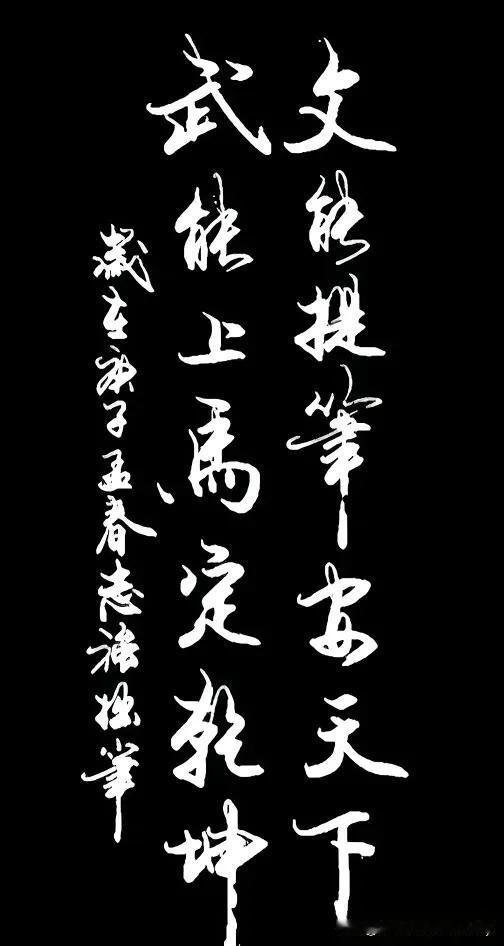 文能提筆安天下
武能上馬定乾坤
歲在庚子孟春志強拙筆